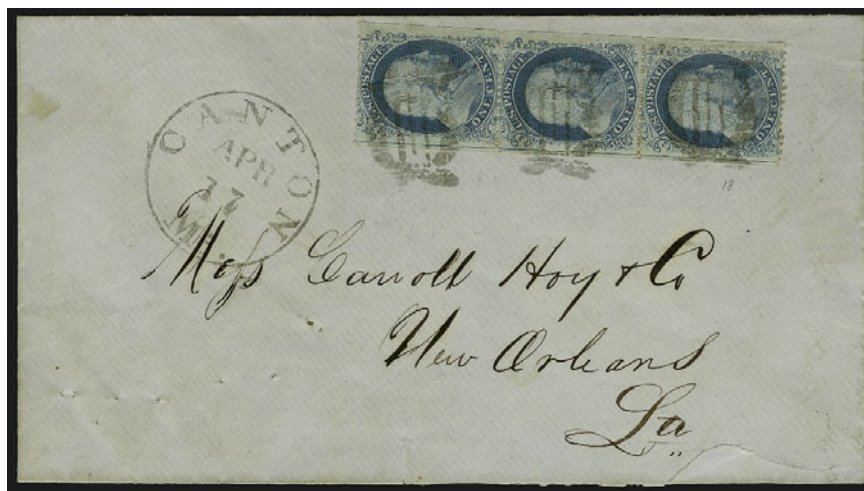 U.S. POSTAGE ONE CENT
U.S. POSTAGE ONE CENT
U.S. POSTAGE ONE CENT
18
CANTON
APR
17
Mess Carroll Hoy & Co
New Orleans
La